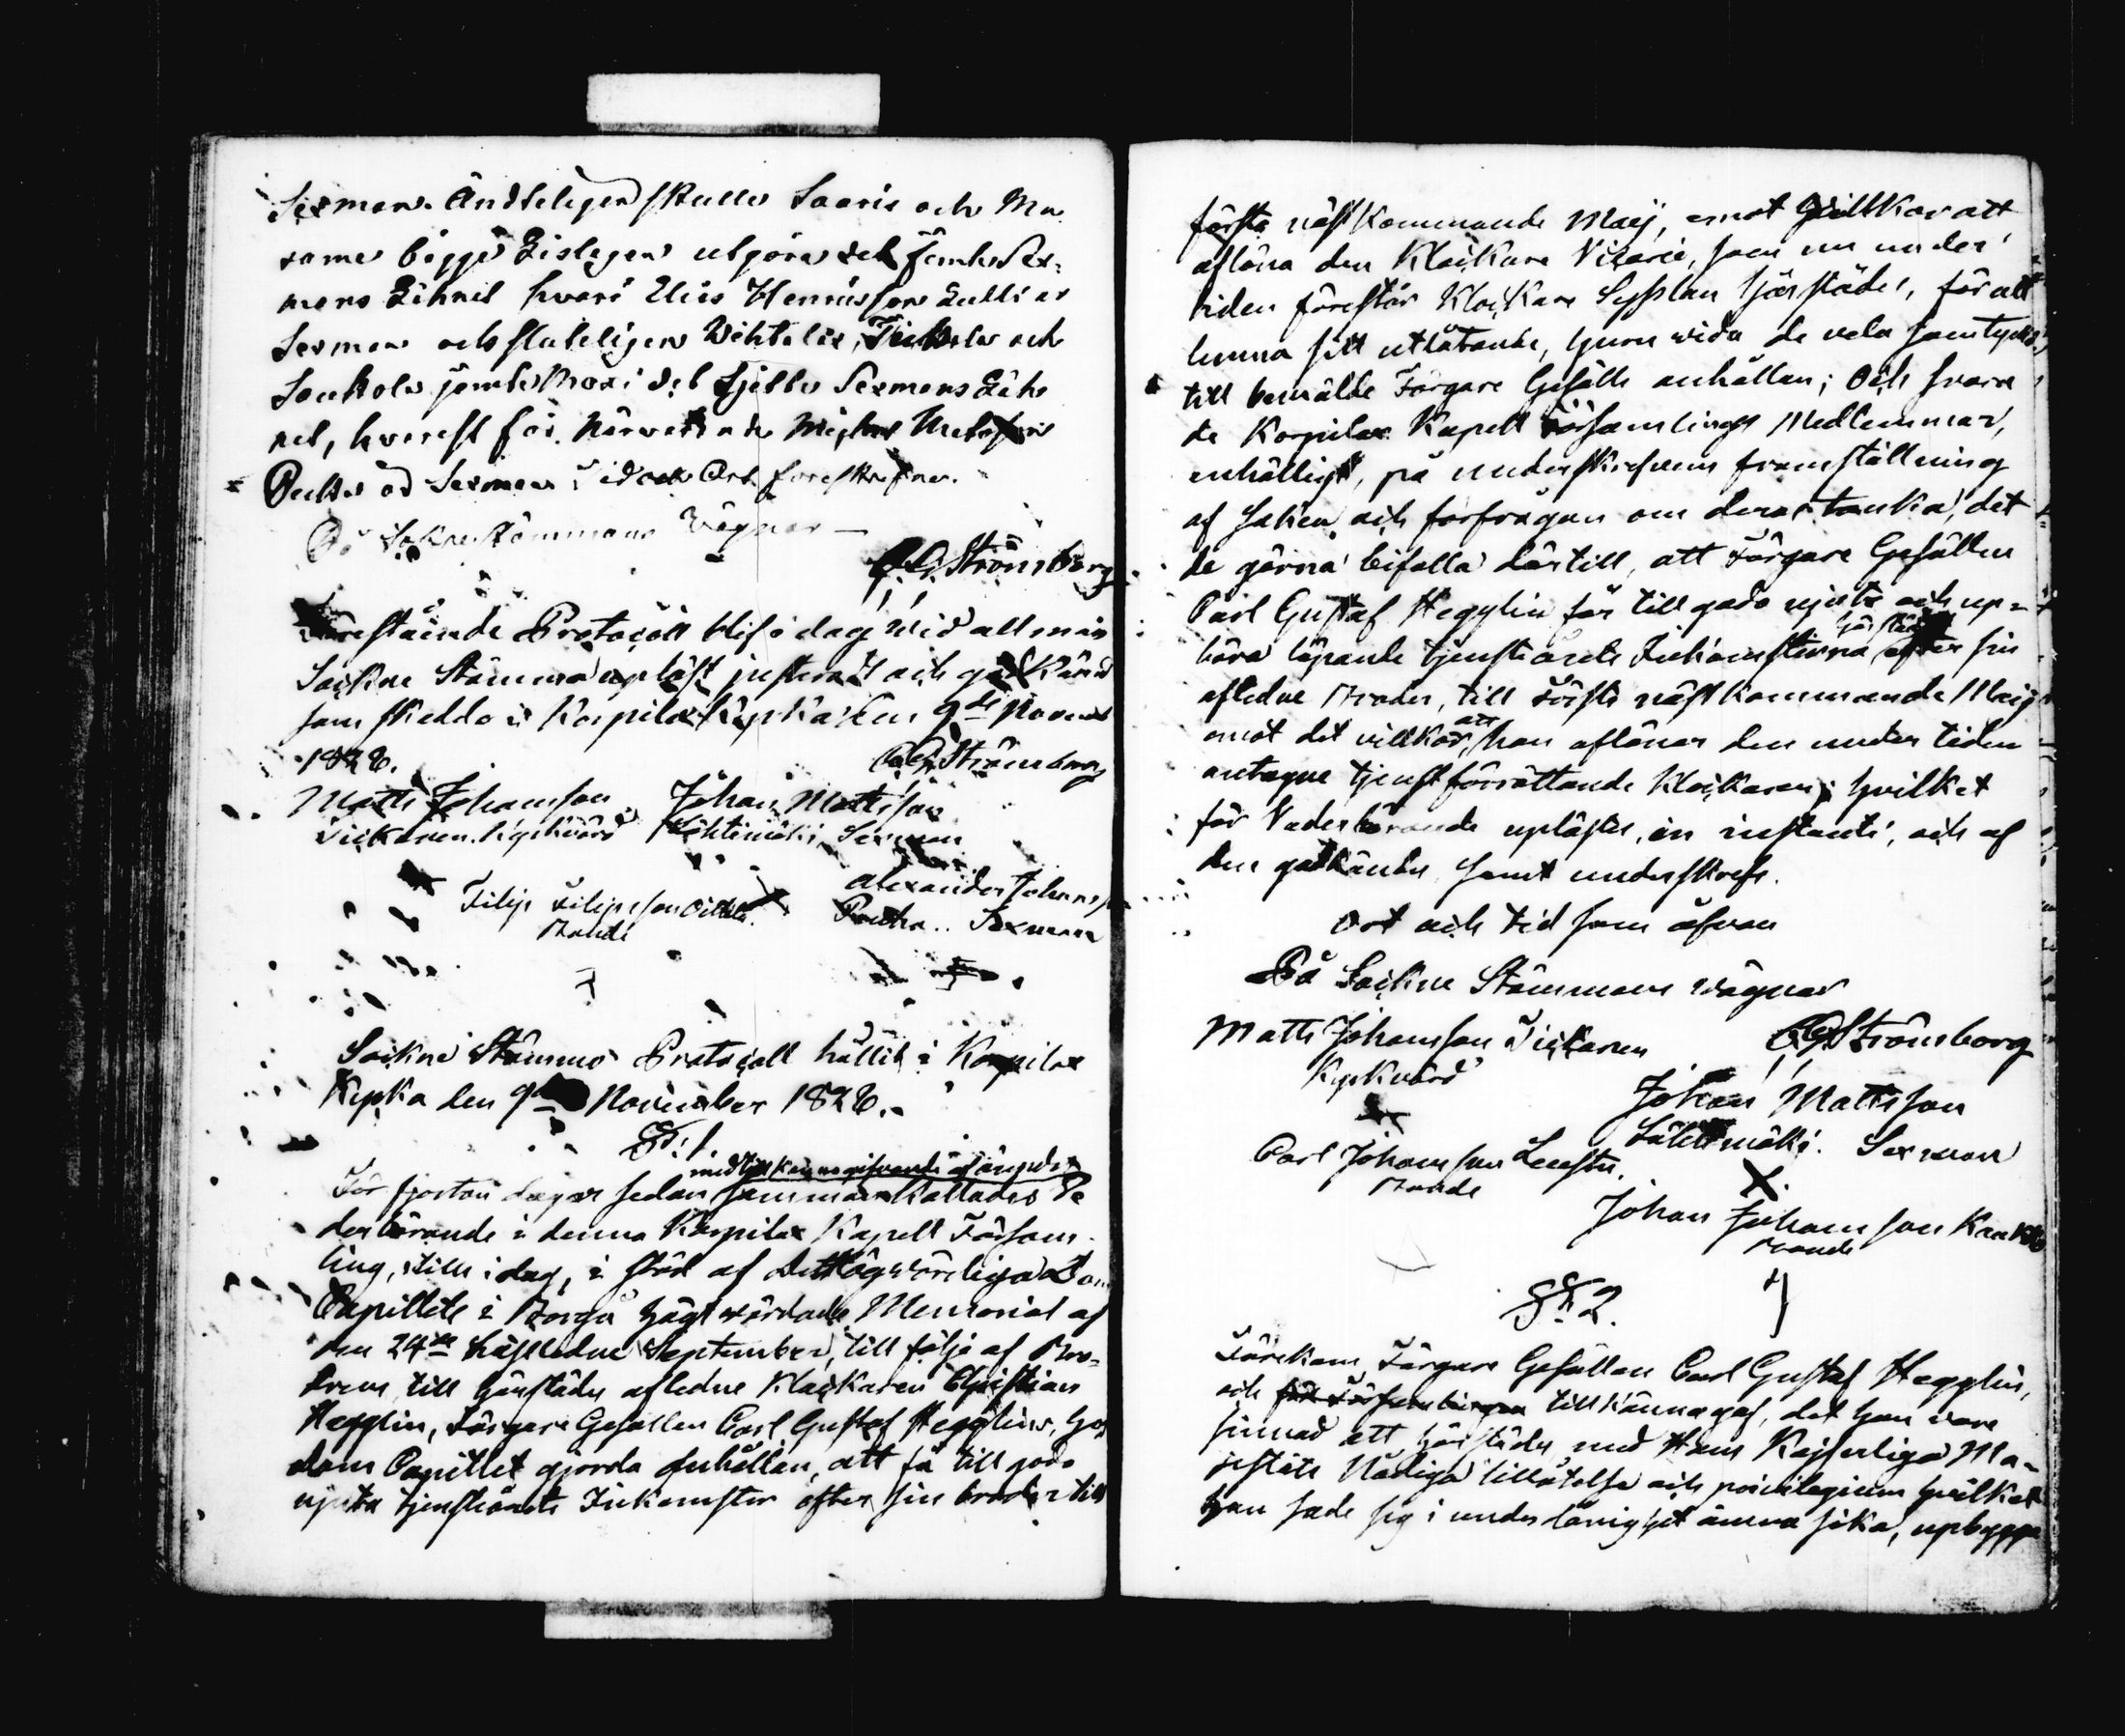 Sexman. Ändteligen skulle Saaris och Mu
rame bägge Lislagen utgöra det femte Sex-
mans Lähnet hvari Elias Henricsson Lulli är
Sexman och sluteligen Wihtalis, Tickala och
Soukola jemte Moxi det Sjette Sexmans Läh
net, hvarest för närvarande Michel Matsson
är Sexman, tid och Ort föreskrefne.
På Sokne Stämmans Vägnar
C.G. Strömborg
Förestående Protocoll blef i dag wid allmän
Sockne Stämma upläst justeradt och godkändt
som skedde i Korpilax Kyrka den 9de Novemb
1826.
C.G. Strömborg
Matts Johansson Johan Mattsson
Tickanen. Kyrkvärd Lähtimäki, Sexman
Filip Filipsson Oittila Alexander Johans
Bonde Sexman
Sockne Stämmo Protocoll hållit i Korpilax
Kyrka den 9de November 1826.
§ 1.
med tillkännagifvande af ängndet
För fjorton dagar sedan sammankallades Ve
derbörande i denna Korpilax Kapell Försam-
ling, till i dag, i stöd af Det Högwördiga Dom
Capitlets i Borgå högtvördade Memorial af
den 24de sistledne September, till följe af Bro-
dren till härstädes afledne Klockaren Christian
Hegglin, Färgare Gesällen Carl Gustaf Hegglins, hos
dom Capitlet gjorda anhållan, att få till godo
njuta tjensteårets Inkomster efter sin broder till
första nästkommande Maij, emot villkor att
aflöna den Klockare Vicarie, som nu under
tiden förestår Klockare Sysslan härstädes, för att
lemna sitt utlåtande, huru vida de vela samtycka
till bemälde Färgare Gesälls anhållan; Och svara
de Korpilax Kapell Församlings Medlemmar,
enhälligt, på underskrefvens framställning
af saken och förfrågan om deras tanka, det
de gärna bifalla dertill, att Färgare Gesällen
Carl Gustaf Hegglin får till godo njuta och up-
bära löpande tjensteårets Inkomsterna härstädes efter sin
afledne Broder, till Förste nästkommande Maij
emot det villkor, att han aflönar den under tiden
antagne tjenstförrättande Klockaren; hvilket
för Vederbörande uplästes, in instanti, och af
dem godkändes samt underskrefs.
Ort och tid som ofvan
På Sockne Stämmans Wägnar
Matts Johansson Tickanen C.G. Strömborg
Kyrkvärd
Johan Mattsson
Lähtimäki. Sexman
Carl Johansson
Bonde
Johan Johansson
Bonde
§ 2.
Förekom Färgare Gesällen Carl Gustaf Hegglin,
och för Församlingen tillkännagaf, det han vore
sinnad att härstädes med Hans Kejserliga Ma-
jestäts Nådiga tillåtelse och privilegium hvilket
han sade sig i underdånighet ämna söka, upbygga